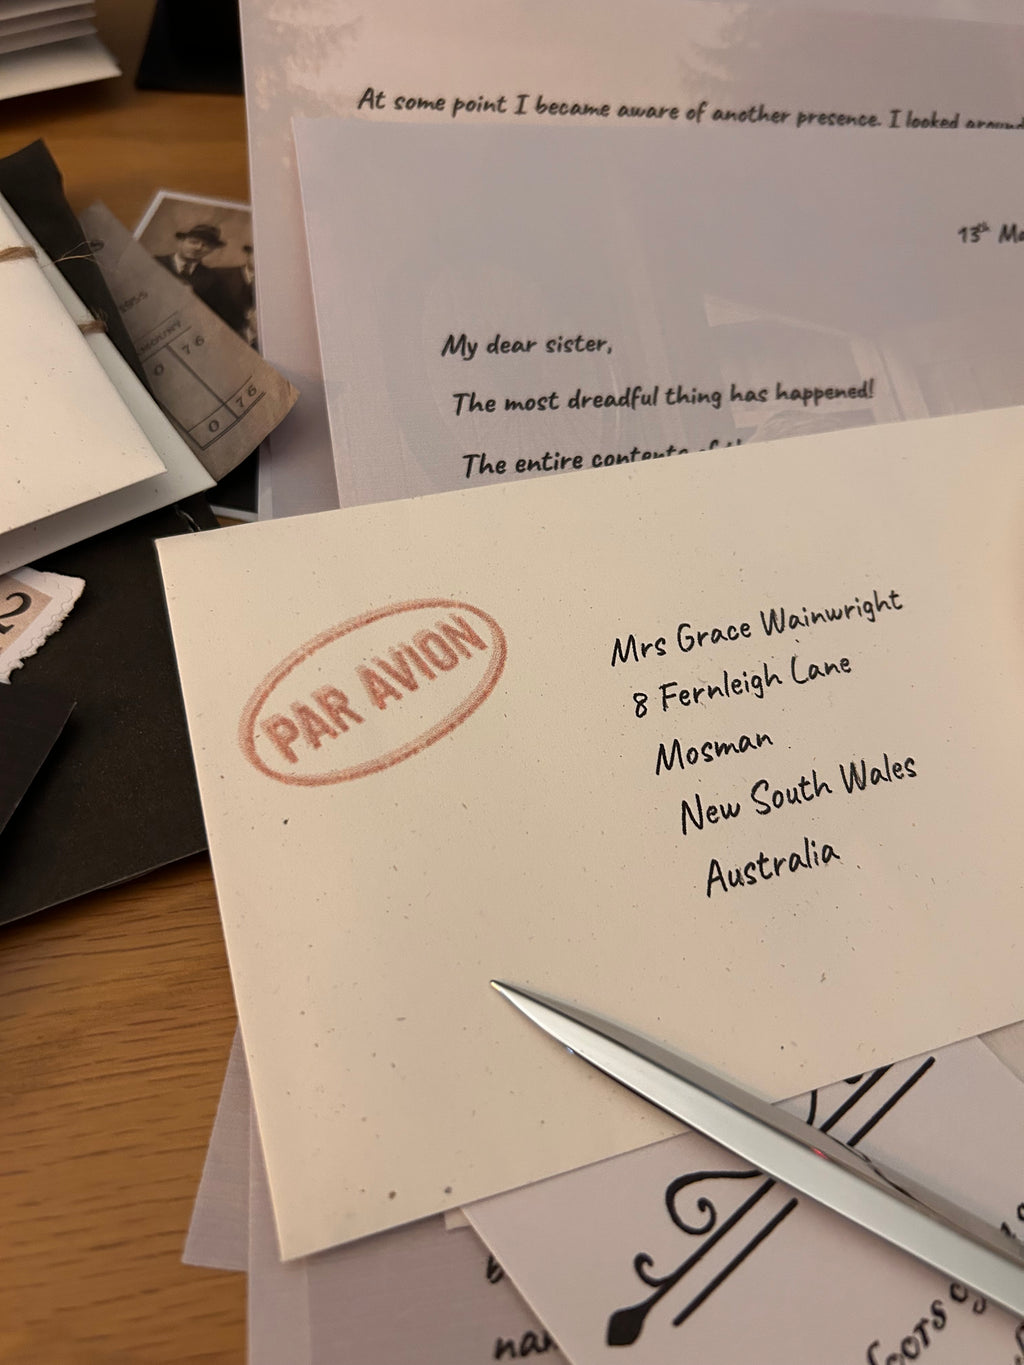 At some point I became aware of another presence. I looked around
13th
My dear sister,
The most dreadful thing has happened!
The entire contents of
1955
AMOUNT
0 76
0 76
PAR AVION
Mrs Grace Wainwright
8 Fernleigh Lane
Mosman
New South Wales
Australia